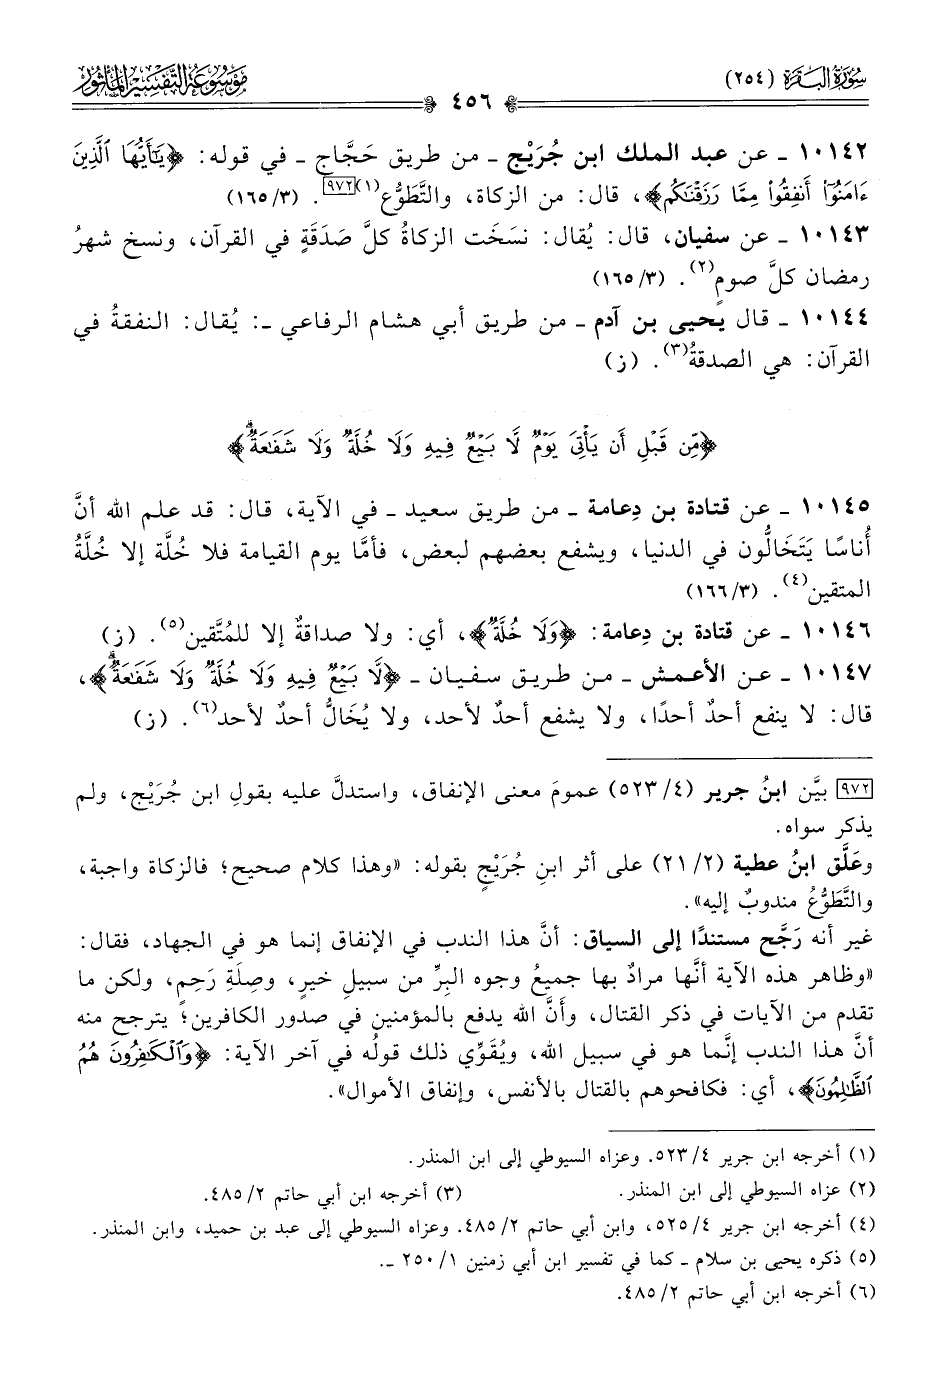 سورة البقرة (٢٥٤)
موسوعة التفسير المأثور
٤٥٦
١٠١٤٢ ـ عن عبد الملك ابن جُرَيْج ـ من طريق حَجَّاج ـ في قوله: ﴿يَـٰٓأَيُّهَا ٱلَّذِينَ
ءَامَنُوٓا۟ أَنفِقُوا۟ مِمَّا رَزَقْنَـٰكُم﴾، قال: من الزكاة، والتَّطَوُّع(١)[٩٧٢]. (٣/ ١٦٥)
١٠١٤٣ ـ عن سفيان، قال: يُقال: نسَخَت الزكاةُ كلَّ صَدَقَةٍ في القرآن، ونسخ شهرُ
رمضان كلَّ صومٍ(٢). (٣/ ١٦٥)
١٠١٤٤ ـ قال يحيى بن آدم ـ من طريق أبي هشام الرفاعي ـ: يُقال: النفقةُ في
القرآن: هي الصدقةُ(٣). (ز)
﴿مِّن قَبْلِ أَن يَأْتِىَ يَوْمٌ لَّا بَيْعٌ فِيهِ وَلَا خُلَّةٌ وَلَا شَفَـٰعَةٌ﴾
١٠١٤٥ ـ عن قتادة بن دِعامة ـ من طريق سعيد ـ في الآية، قال: قد علم الله أنَّ
أُناسًا يَتَخَالُّون في الدنيا، ويشفع بعضهم لبعض، فأمَّا يوم القيامة فلا خُلَّة إلا خُلَّةُ
المتقين(٤). (٣/ ١٦٦)
١٠١٤٦ ـ عن قتادة بن دِعامة: ﴿وَلَا خُلَّةٌ﴾، أي: ولا صداقةٌ إلا للمُتَّقين(٥). (ز)
١٠١٤٧ ـ عـن الأعـمـش ـ مـن طـريـق سـفـيـان ـ ﴿لَّا بَيْعٌ فِيهِ وَلَا خُلَّةٌ وَلَا شَفَـٰعَةٌ﴾،
قال: لا ينفع أحدٌ أحدًا، ولا يشفع أحدٌ لأحد، ولا يُخَالُّ أحدٌ لأحد(٦). (ز)
[٩٧٢] بيَّن ابنُ جرير (٤/ ٥٢٣) عمومَ معنى الإنفاق، واستدلَّ عليه بقولِ ابن جُرَيْج، ولم
يذكر سواه.
وعَلَّق ابنُ عطية (٢/ ٢١) على أثر ابنِ جُرَيْجٍ بقوله: «وهذا كلام صحيح؛ فالزكاة واجبة،
والتَّطَوُّعُ مندوبٌ إليه».
غير أنه رَجَّح مستندًا إلى السياق: أنَّ هذا الندب في الإنفاق إنما هو في الجهاد، فقال:
«وظاهر هذه الآية أنَّها مرادٌ بها جميعُ وجوه البِرِّ من سبيلِ خيرٍ، وصِلَةِ رَحِمٍ، ولكن ما
تقدم من الآيات في ذكر القتال، وأنَّ الله يدفع بالمؤمنين في صدور الكافرين؛ يترجح منه
أنَّ هذا الندب إنَّما هو في سبيل الله، ويُقَوِّي ذلك قولُه في آخر الآية: ﴿وَٱلْكَـٰفِرُونَ هُمُ
ٱلظَّـٰلِمُونَ﴾، أي: فكافحوهم بالقتال بالأنفس، وإنفاق الأموال».
(١) أخرجه ابن جرير ٤/ ٥٢٣. وعزاه السيوطي إلى ابن المنذر.
(٢) عزاه السيوطي إلى ابن المنذر.
(٣) أخرجه ابن أبي حاتم ٢/ ٤٨٥.
(٤) أخرجه ابن جرير ٤/ ٥٢٥، وابن أبي حاتم ٢/ ٤٨٥. وعزاه السيوطي إلى عبد بن حميد، وابن المنذر.
(٥) ذكره يحيى بن سلام ـ كما في تفسير ابن أبي زمنين ١/ ٢٥٠ ـ.
(٦) أخرجه ابن أبي حاتم ٢/ ٤٨٥.